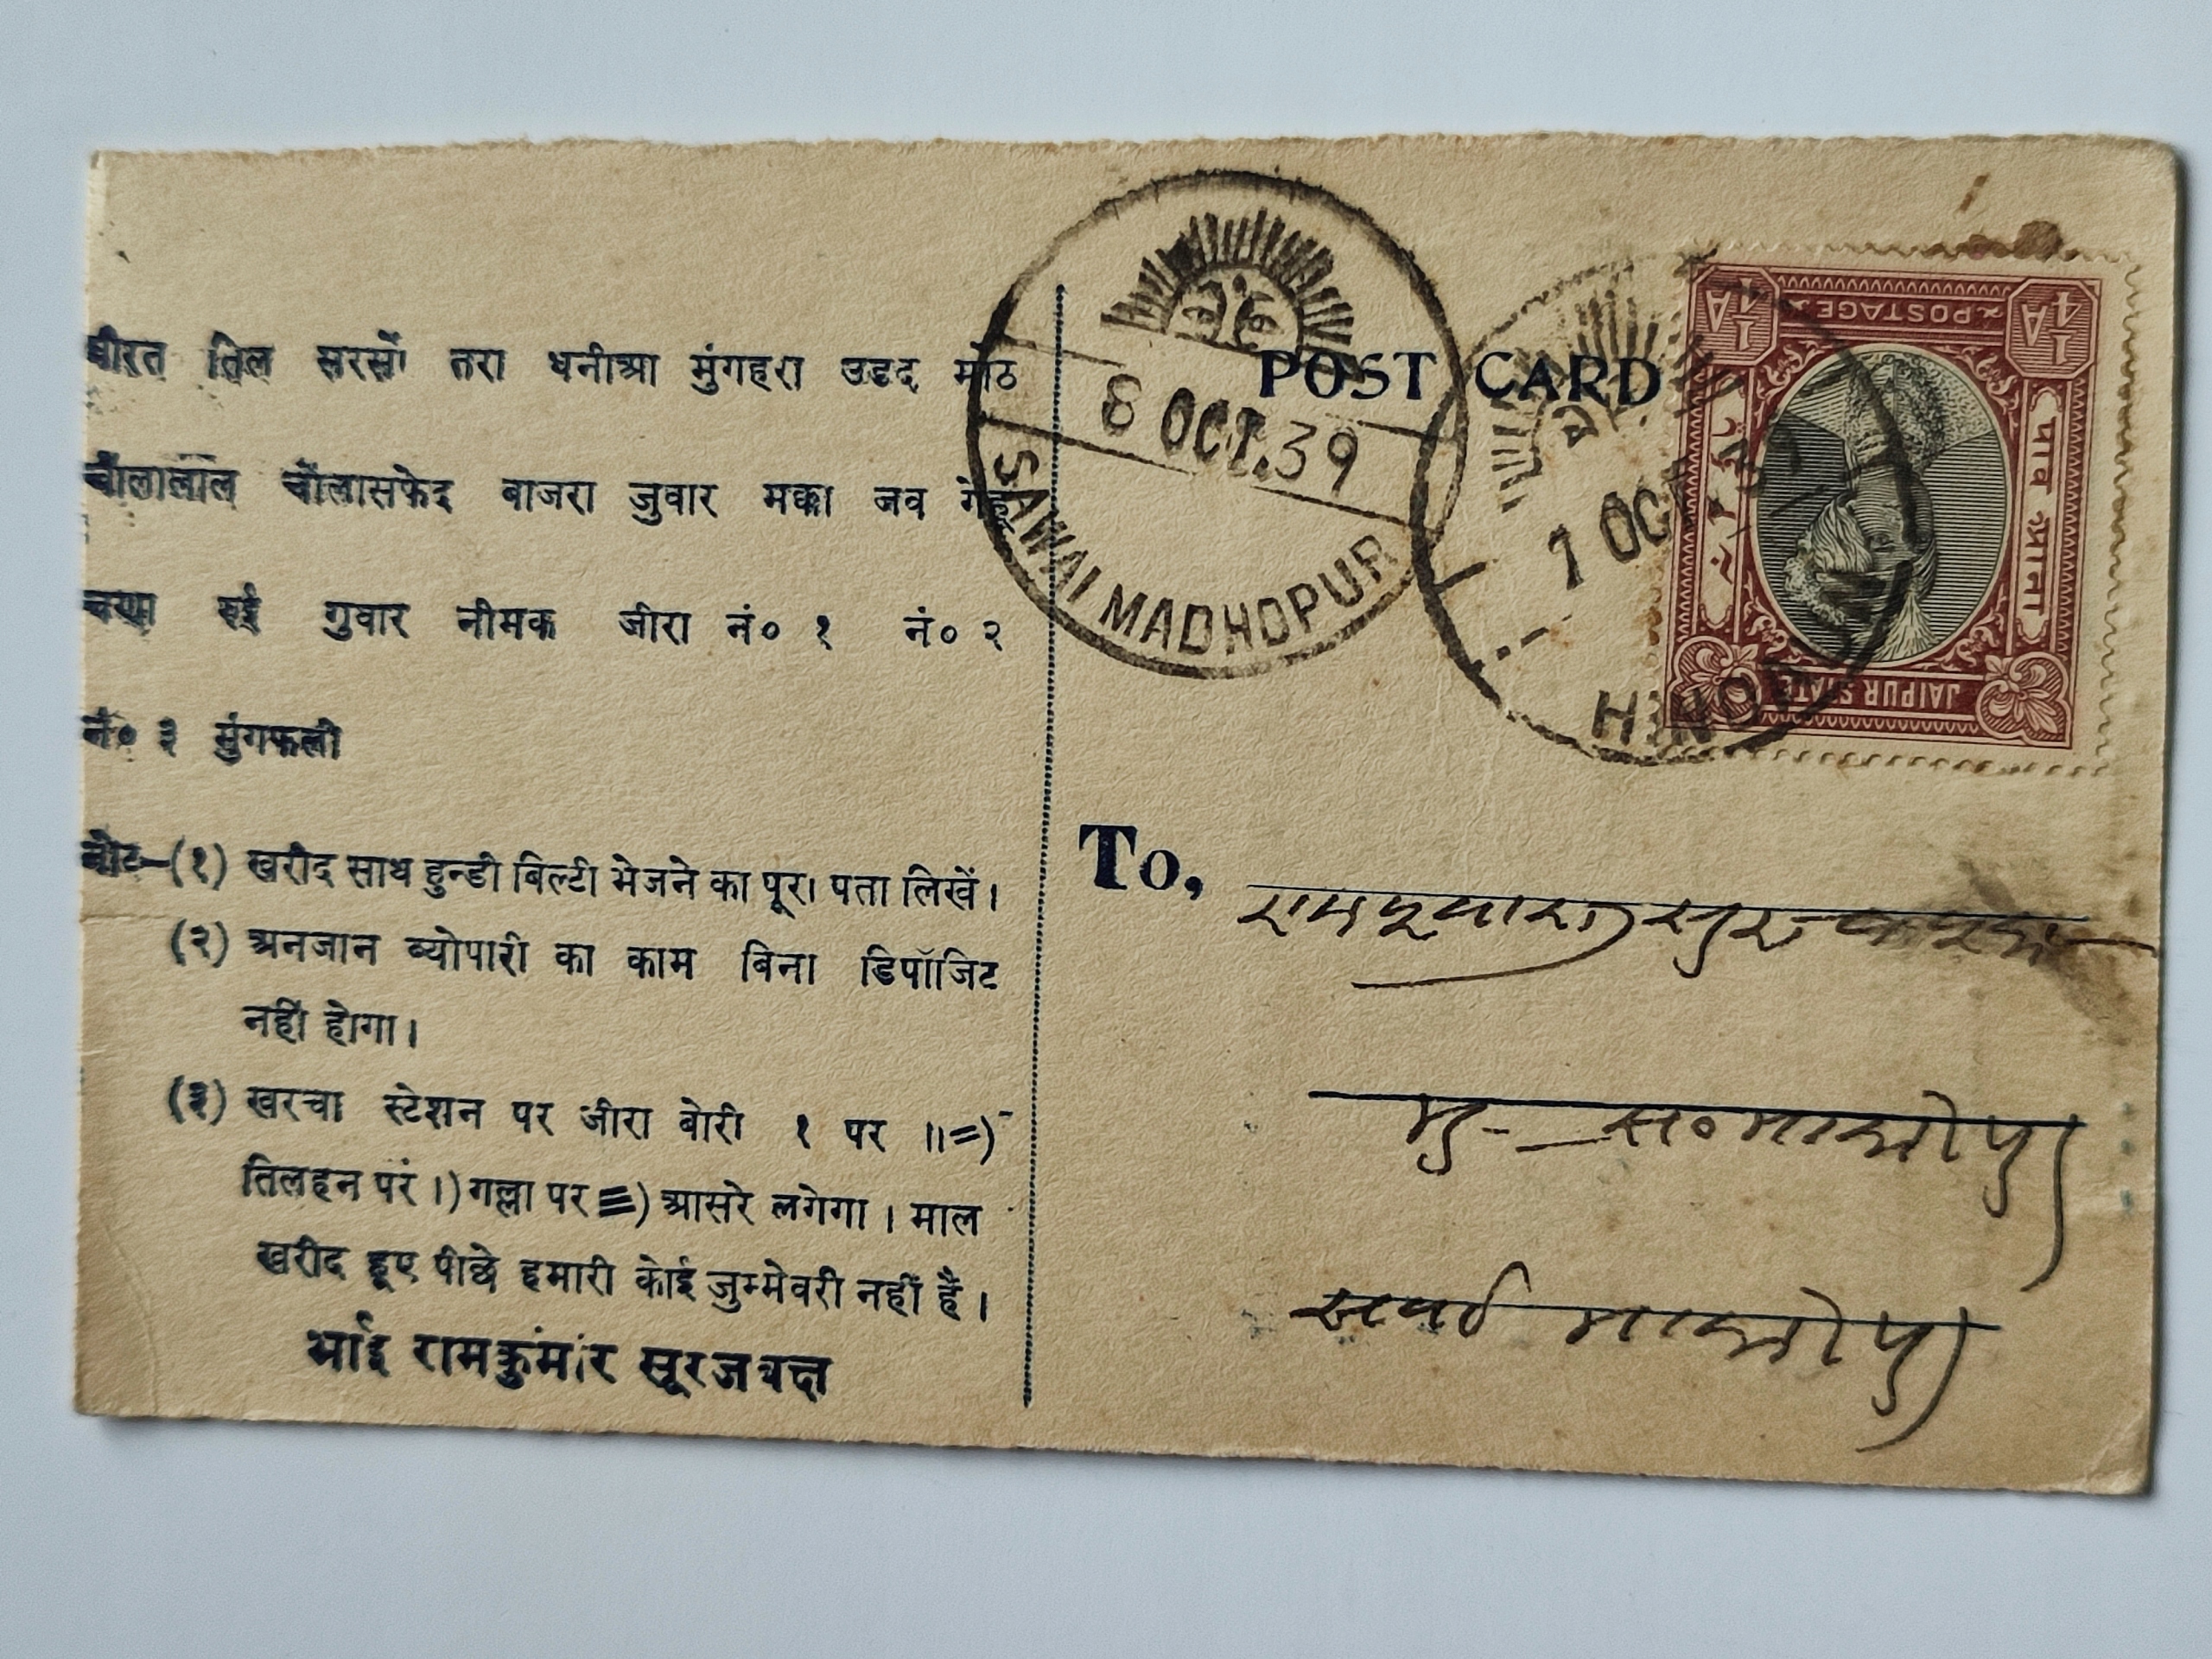 घीरत तिल सरसों तरा धनीआ मुंगहरा उडद मोठ
चौलालाल चौलासफेद बाजरा जुवार मक्का जव गेहू
चणा रुई गुवार नीमक जीरा नं० १ नं० २
नं० ३ मुंगफली
नोट—(१) खरीद साथ हुन्डी बिल्टी भेजने का पूरा पता लिखें।
(२) अनजान ब्योपारी का काम बिना डिपॉजिट
नहीं होगा।
(३) खरचा स्टेशन पर जीरा बोरी १ पर ॥=)
तिलहन परं ।) गल्ला पर ≡) आसरे लगेगा । माल
खरीद हूए पीछे हमारी कोई जुम्मेवरी नहीं है ।
भाई रामकुंमार सूरजबक्ष
POST CARD
OCT.39
SAWAI MADHOPUR
OC
¼A POSTAGE ¼A
पाव आना
JAIPUR STATE
To,